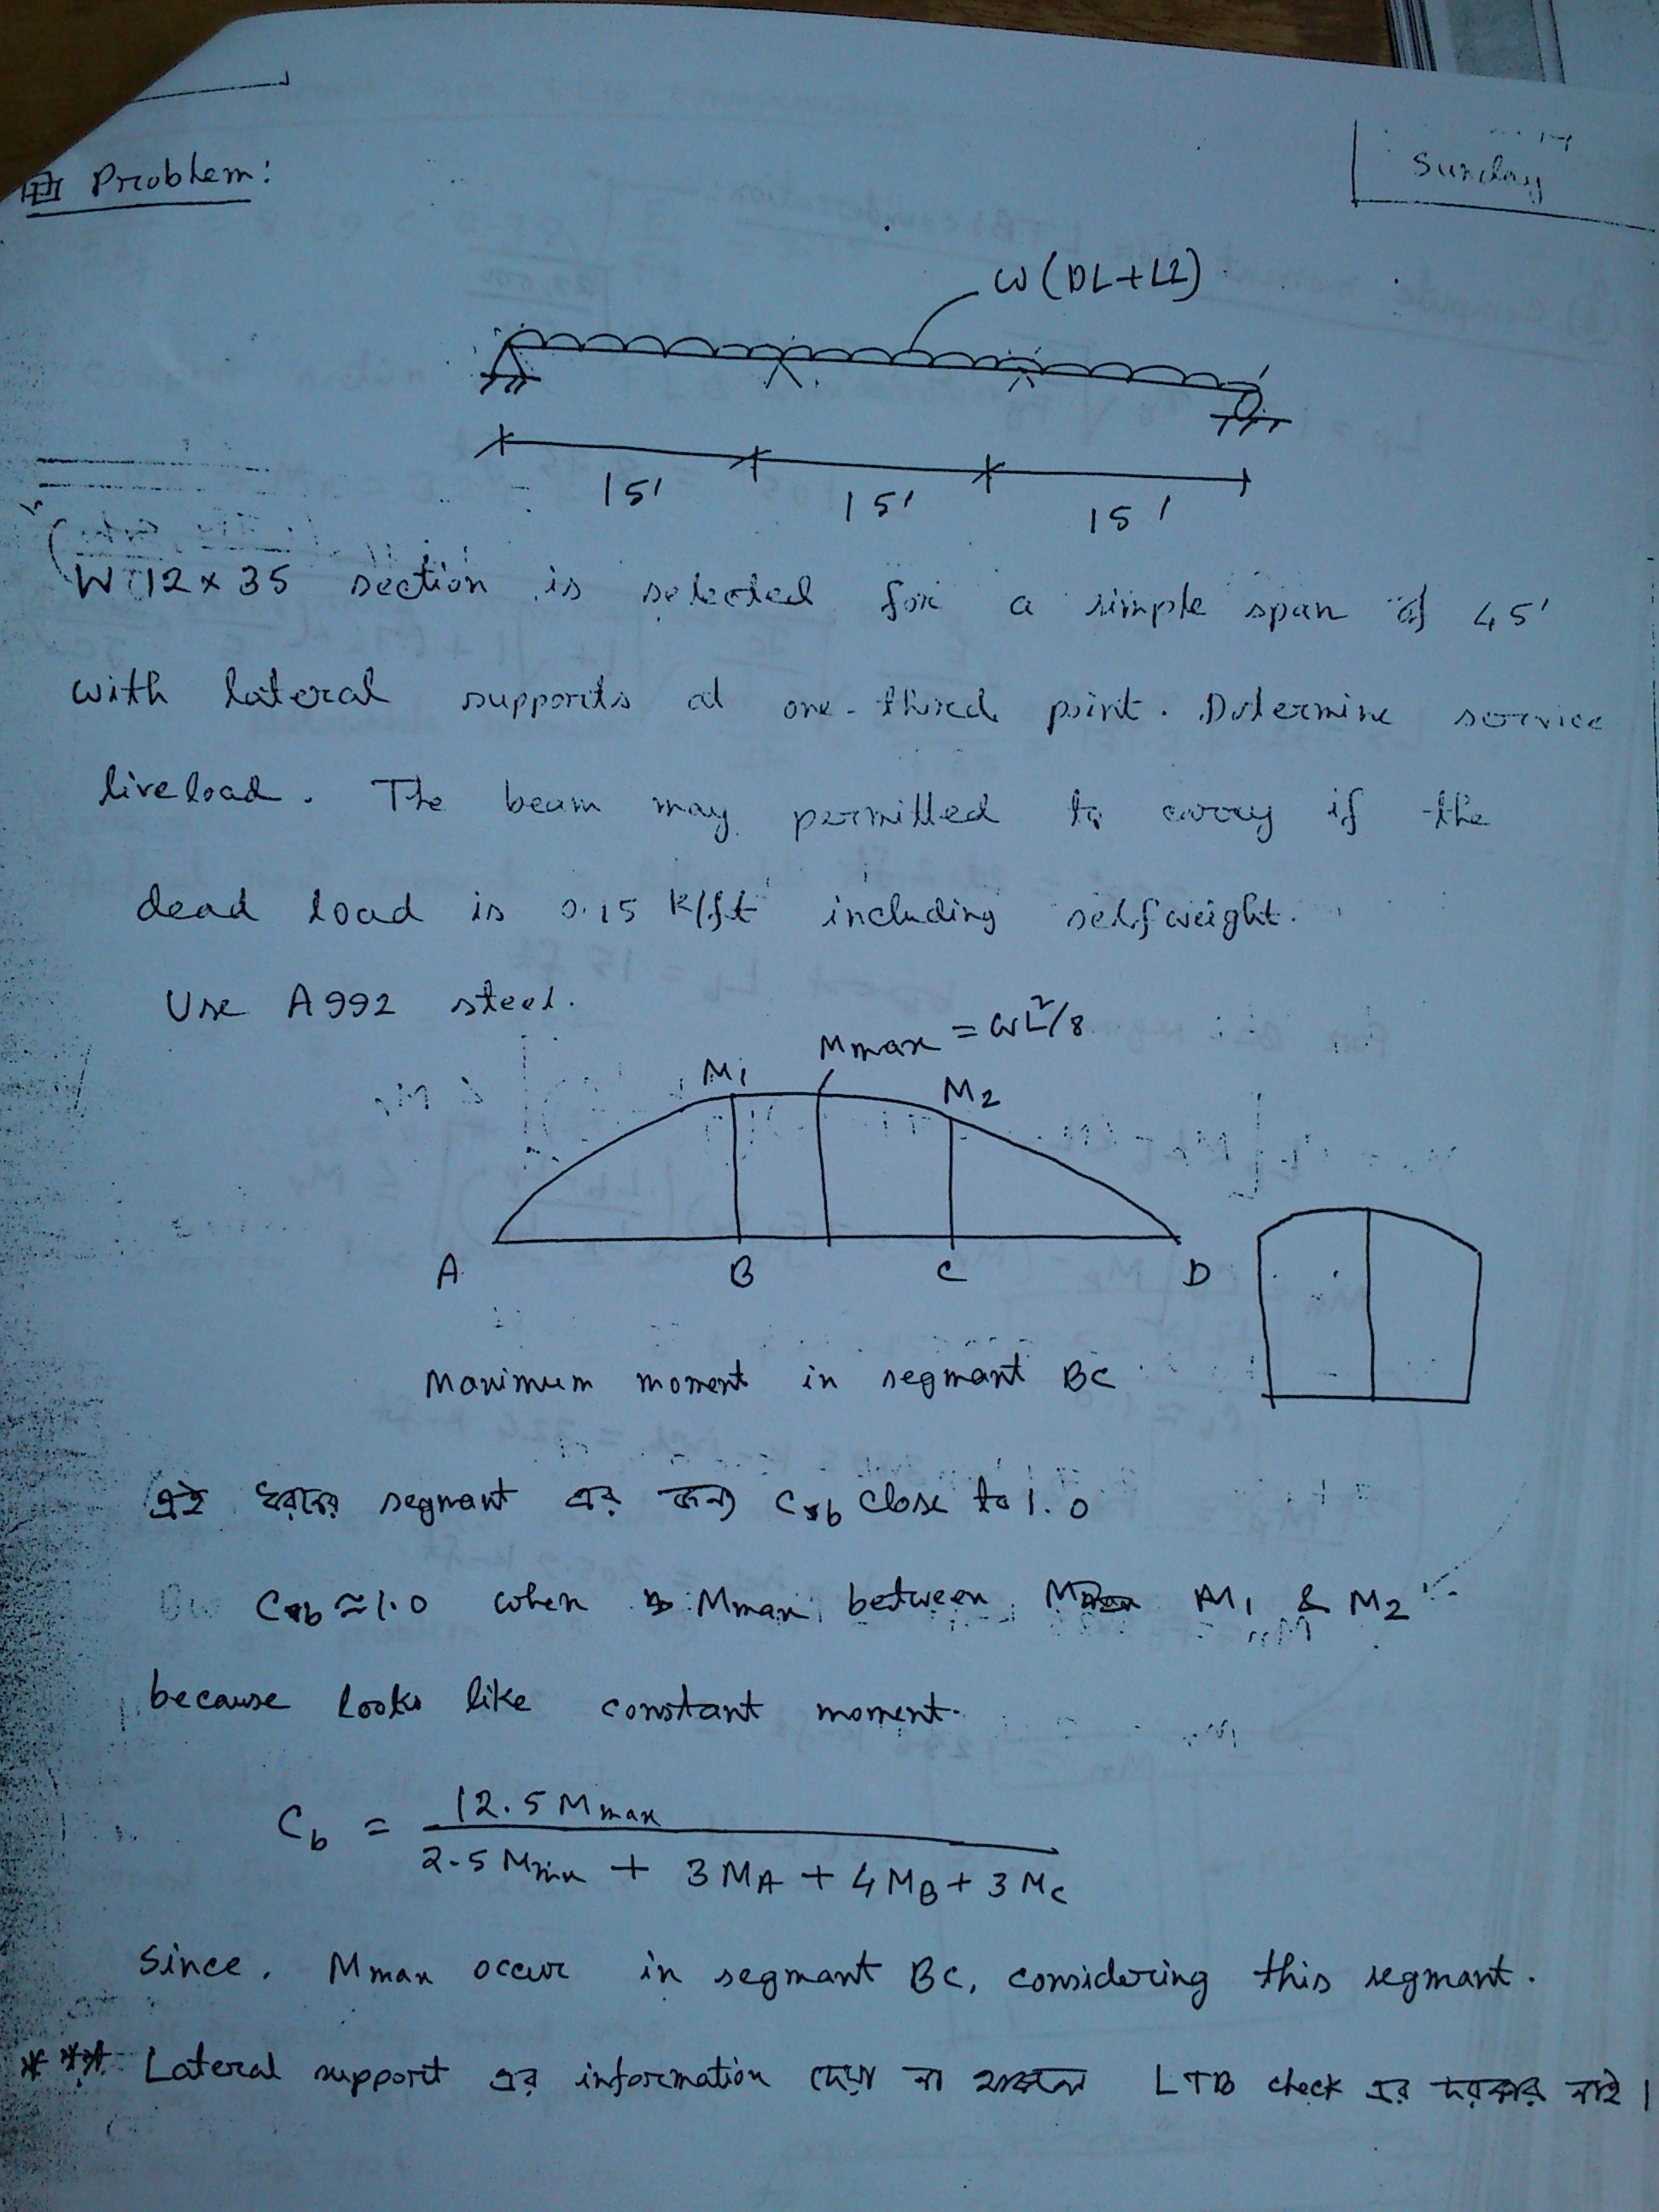 Problem:
Sunday
W (DL+LL)
15' 15' 15'
W 12 x 35 section is selected for a simple span of 45'
with lateral supports at one-third point. Determine service
liveload. The beam may permitted to carry if the
dead load is 0.15 K/ft including selfweight.
Use A992 steel.
Mmax = WL²/8
M1 M2
A B C D
Maximum moment in segmant BC
এই ধরনের segmant এর জন্য Cb close to 1.0
Cb ≈ 1.0 when Mmax between M1 & M2
because looks like constant moment.
Cb = 12.5 Mmax / 2.5 Mmax + 3 MA + 4 MB + 3 MC
Since, Mmax occur in segmant BC, considering this segmant.
*** Lateral support এর information দেয়া না থাকলে LTB check এর দরকার নাই।